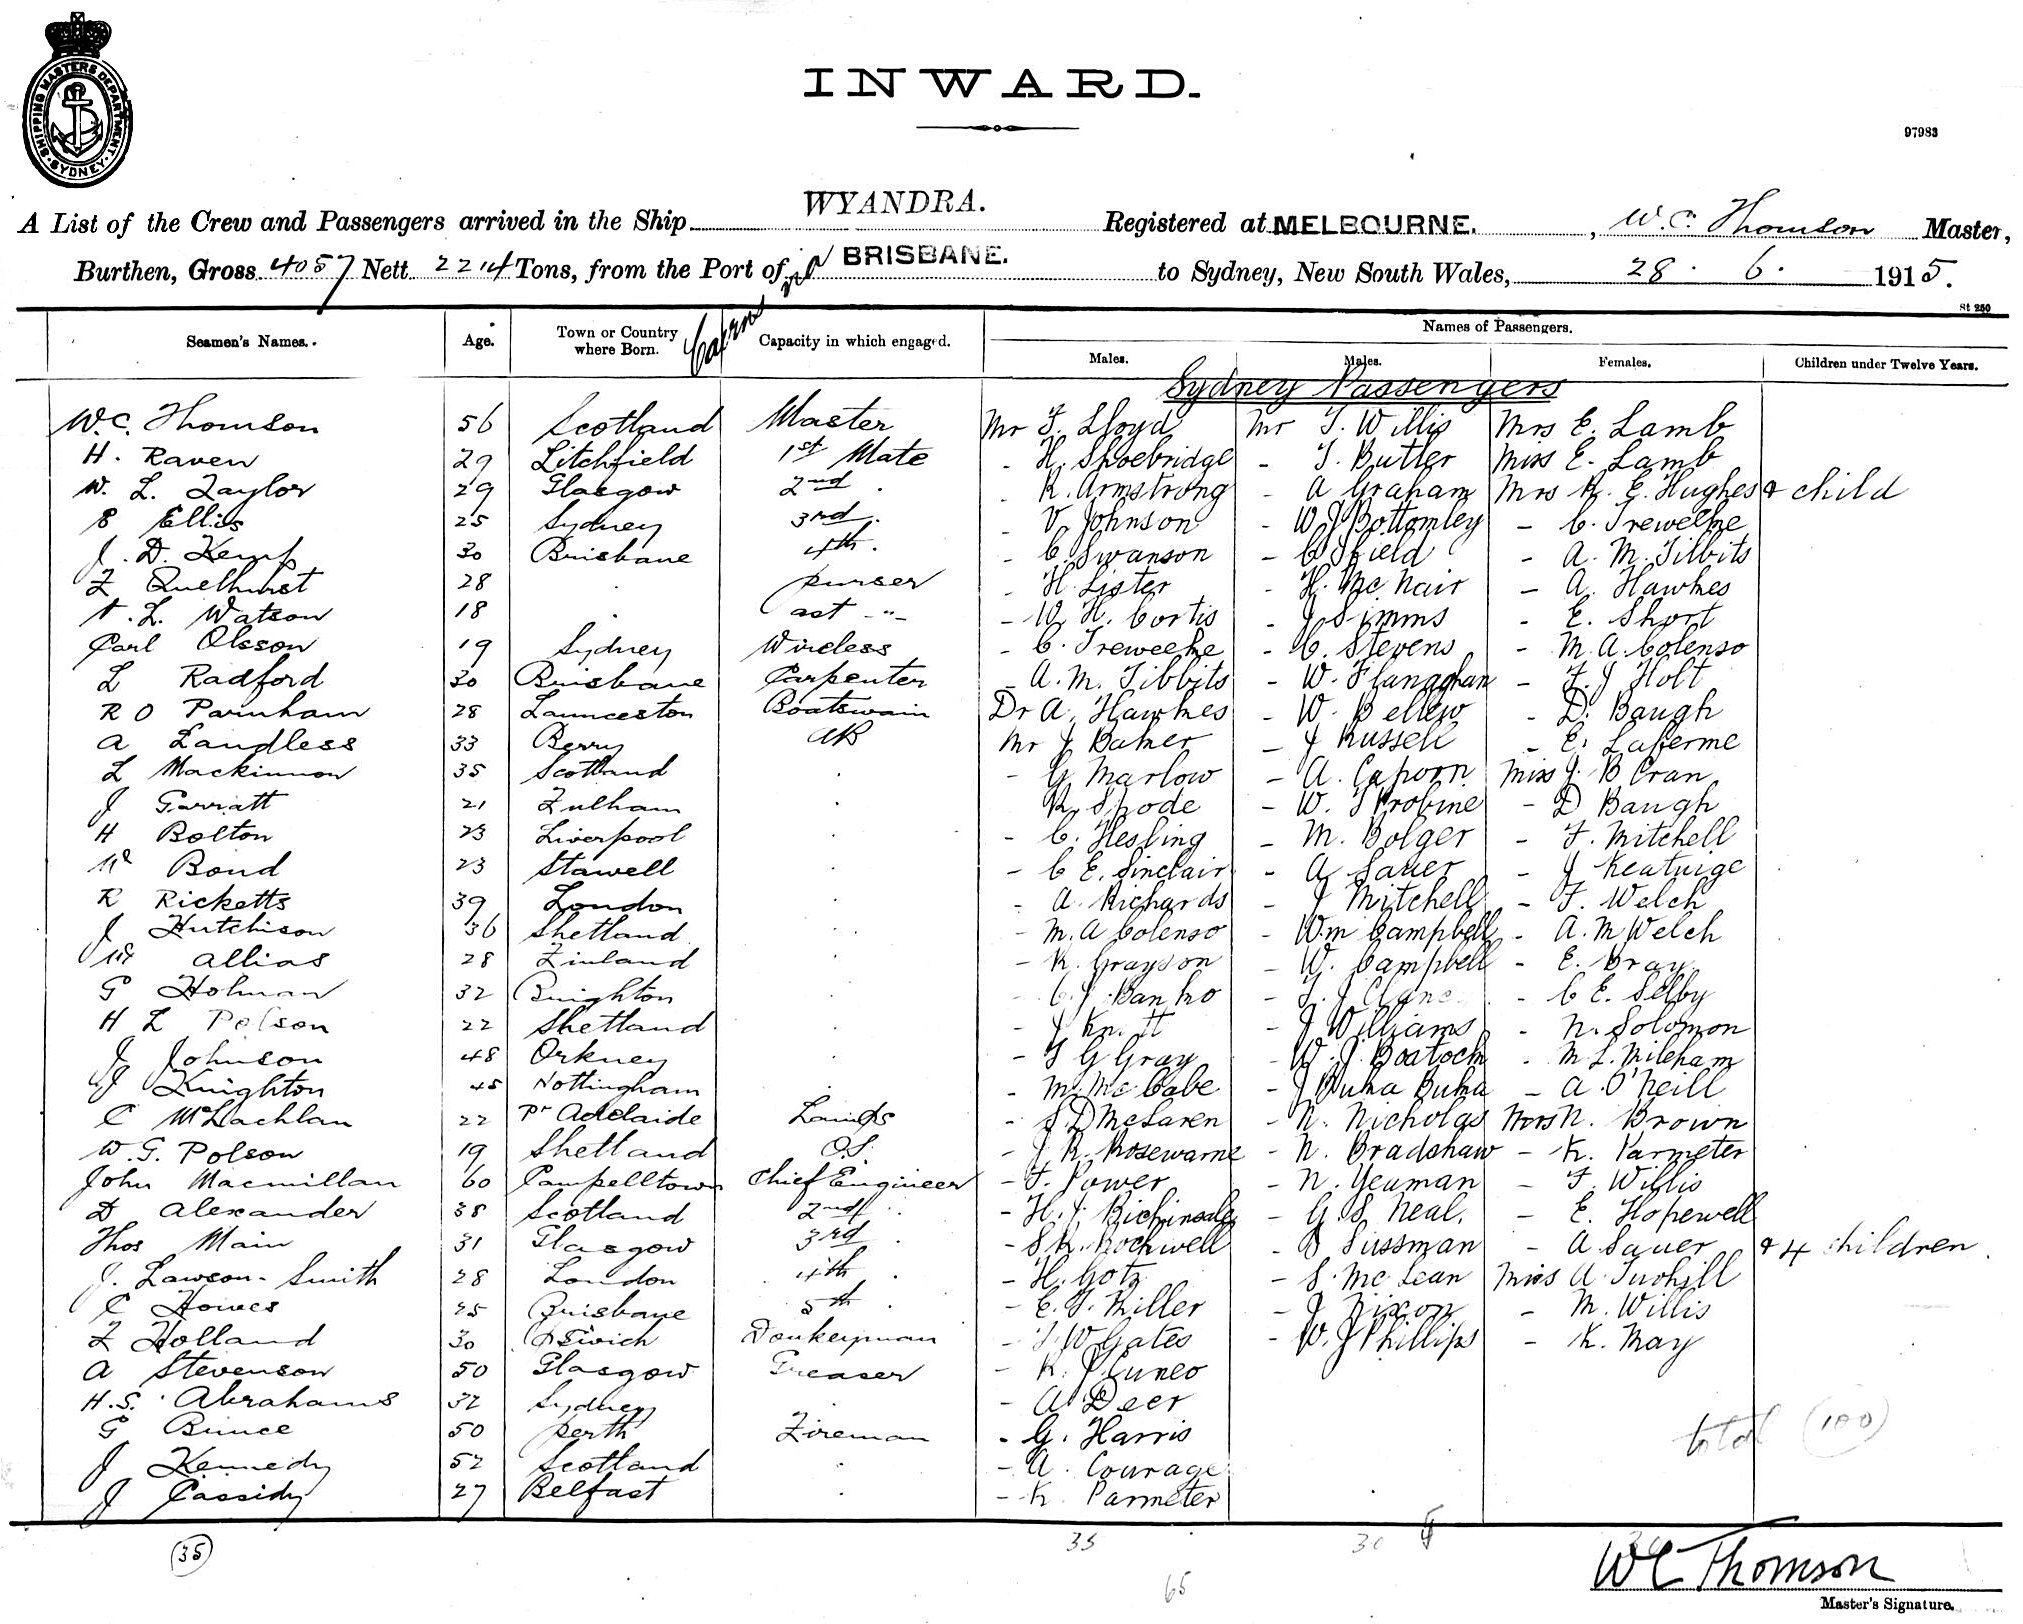 SHIPPING MASTERS DEPARTMENT. SYDNEY.
INWARD.
97983
A List of the Crew and Passengers arrived in the Ship WYANDRA. Registered at MELBOURNE. , W. C. Thomson Master,
Burthen, Gross 4057 Nett 2214 Tons, from the Port of Cairns via BRISBANE. to Sydney, New South Wales, 28 . 6 . 1915.
St 250
Seamen's Names. Age. Town or Country where Born. Capacity in which engaged. Names of Passengers.
Males. Males. Females. Children under Twelve Years.
Sydney Passengers
W. C. Thomson 56 Scotland Master Mr F. Lloyd Mr T. Willis Mrs E. Lamb
H. Raven 29 Litchfield 1st Mate - H. Shoebridge - T. Butler Miss E. Lamb
W. L. Taylor 29 Glasgow 2nd . - R. Armstrong - A Graham Mrs R. E. Hughes & child
S Ellis 25 Sydney 3rd . - V. Johnson - W J Bottomley - C. Treweeke
J. D. Kemp 30 Brisbane 4th . - C. Swanson - C Sfield - A. M. Tibbits
F Quelhurst 28 . purser - H. Lister - H. McNair - A. Hawkes
A. L. Watson 18 . asst -"- - W. H. Cortis - J Simms - E. Short
Carl Olsson 19 Sydney Wireless - C. Treweeke - C. Stevens - M. A. Colenso
L Radford 30 Brisbane Carpenter - A. M. Tibbits - W. Flanaghan - F. J Holt
R O Parnham 28 Launceston Boatswain Dr A. Hawkes - W. Bellew - D. Baugh
A Landless 33 Berry AB Mr J Baker - J Russell - E. Laferme
L Mackinnon 35 Scotland . - G. Marlow - A. Caporn Miss J. B Cran
J Garratt 21 Fulham . R. Spode - W. T Probine - D Baugh
H Bolton 23 Liverpool . - C. Hesling - M. Bolger - F. Mitchell
W Bond 23 Stawell . - C E. Sinclair - A Sauer - J Keatinge
R Ricketts 39 London . - A. Richards - J Mitchell - F. Welch
J Hutchison 36 Shetland . - M. A Colenso - Wm Campbell - A. M Welch
W Allias 28 Finland . - K. Grayson - W. Campbell - E. Bray
G Holman 32 Brighton . - C. J. Banko - T. J Clanc - C E. Selby
H L Polson 22 Shetland . - J Knott - J Williams - N. Solomon
J Johnson 48 Orkney . - T G Gray - W. J. Bostock - M L. Mileham
J Knighton 45 Nottingham . - M. McCabe - J Buka Buka - A O'Neill
C McLachlan 22 Pt Adelaide Lamps - J. D McLaren - N. Nicholas Mrs N. Brown
W. G. Polson 19 Shetland O.S. - J. R. Rosewarne - N. Bradshaw - K. Parmeter
John Macmillan 60 Campelltown Chief Engineer - F. Power - N. Yeuman - F. Willis
D Alexander 38 Scotland 2nd . - H. J. - G. S. Neal. - E. Hopewell
Thos Main 31 Glasgow 3rd . - S R. Rockwell - Sussman - A Sauer & 4 children .
J. Lawson-Smith 28 London 4th . - H. Gotz - S. McLean Miss A. Tuohill
C Howes 25 Brisbane 5th . - E. T. Miller - J Nixon - M. Willis
F Holland 30 Ipswich Donkeyman - T. W Gates - W. J Phillips - K. May
A Stevenson 50 Glasgow Greaser - K. P Cuneo
H. S. Abrahams 32 Sydney . - A Deer
G Bunce 50 Perth Fireman - G. Harris
J Kennedy 52 Scotland . - A. Courage
J Cassidy 27 Belfast . - K Parmeter
total (100)
(35) 35 30
65
W C Thomson
Master's Signature.